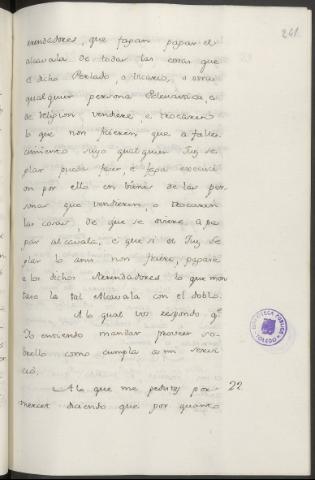 261
rrendadores, que fagan pagar el
alcavala de todas las cosas que
el dicho Perlado, o Vicario, o otra
qualquier persona Eclesiastica, o
de religion vendiere, e trocaren
lo que non ficieren que a falle-
cimiento suyo qualquier Juez se-
glar pueda facer, e faga execuci-
on por ello en bienes de las per-
sonas que vendieren, o trocaren
las cosas, de que se oviere a pa-
gar alcavala, e que si el Juez se-
glar lo ansi non ficiere, pagare
a los dichos Arrendadores lo que mon-
tare la tal Alcavala con el doblo.
A lo qual vos respondo qe
Yo entiendo mandar proveer so-
brello como cumpla a mi servi-
cio.
A lo que me pedistes por 22
merced diciendo que por quanto
BIBLIOTECA PUBLICA
TOLEDO